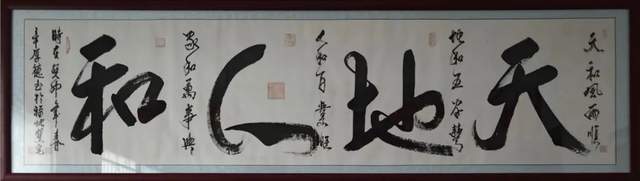 天地人和
天和風雨順
地和五谷豐
人和百業旺
家和萬事興
時在癸卯年春